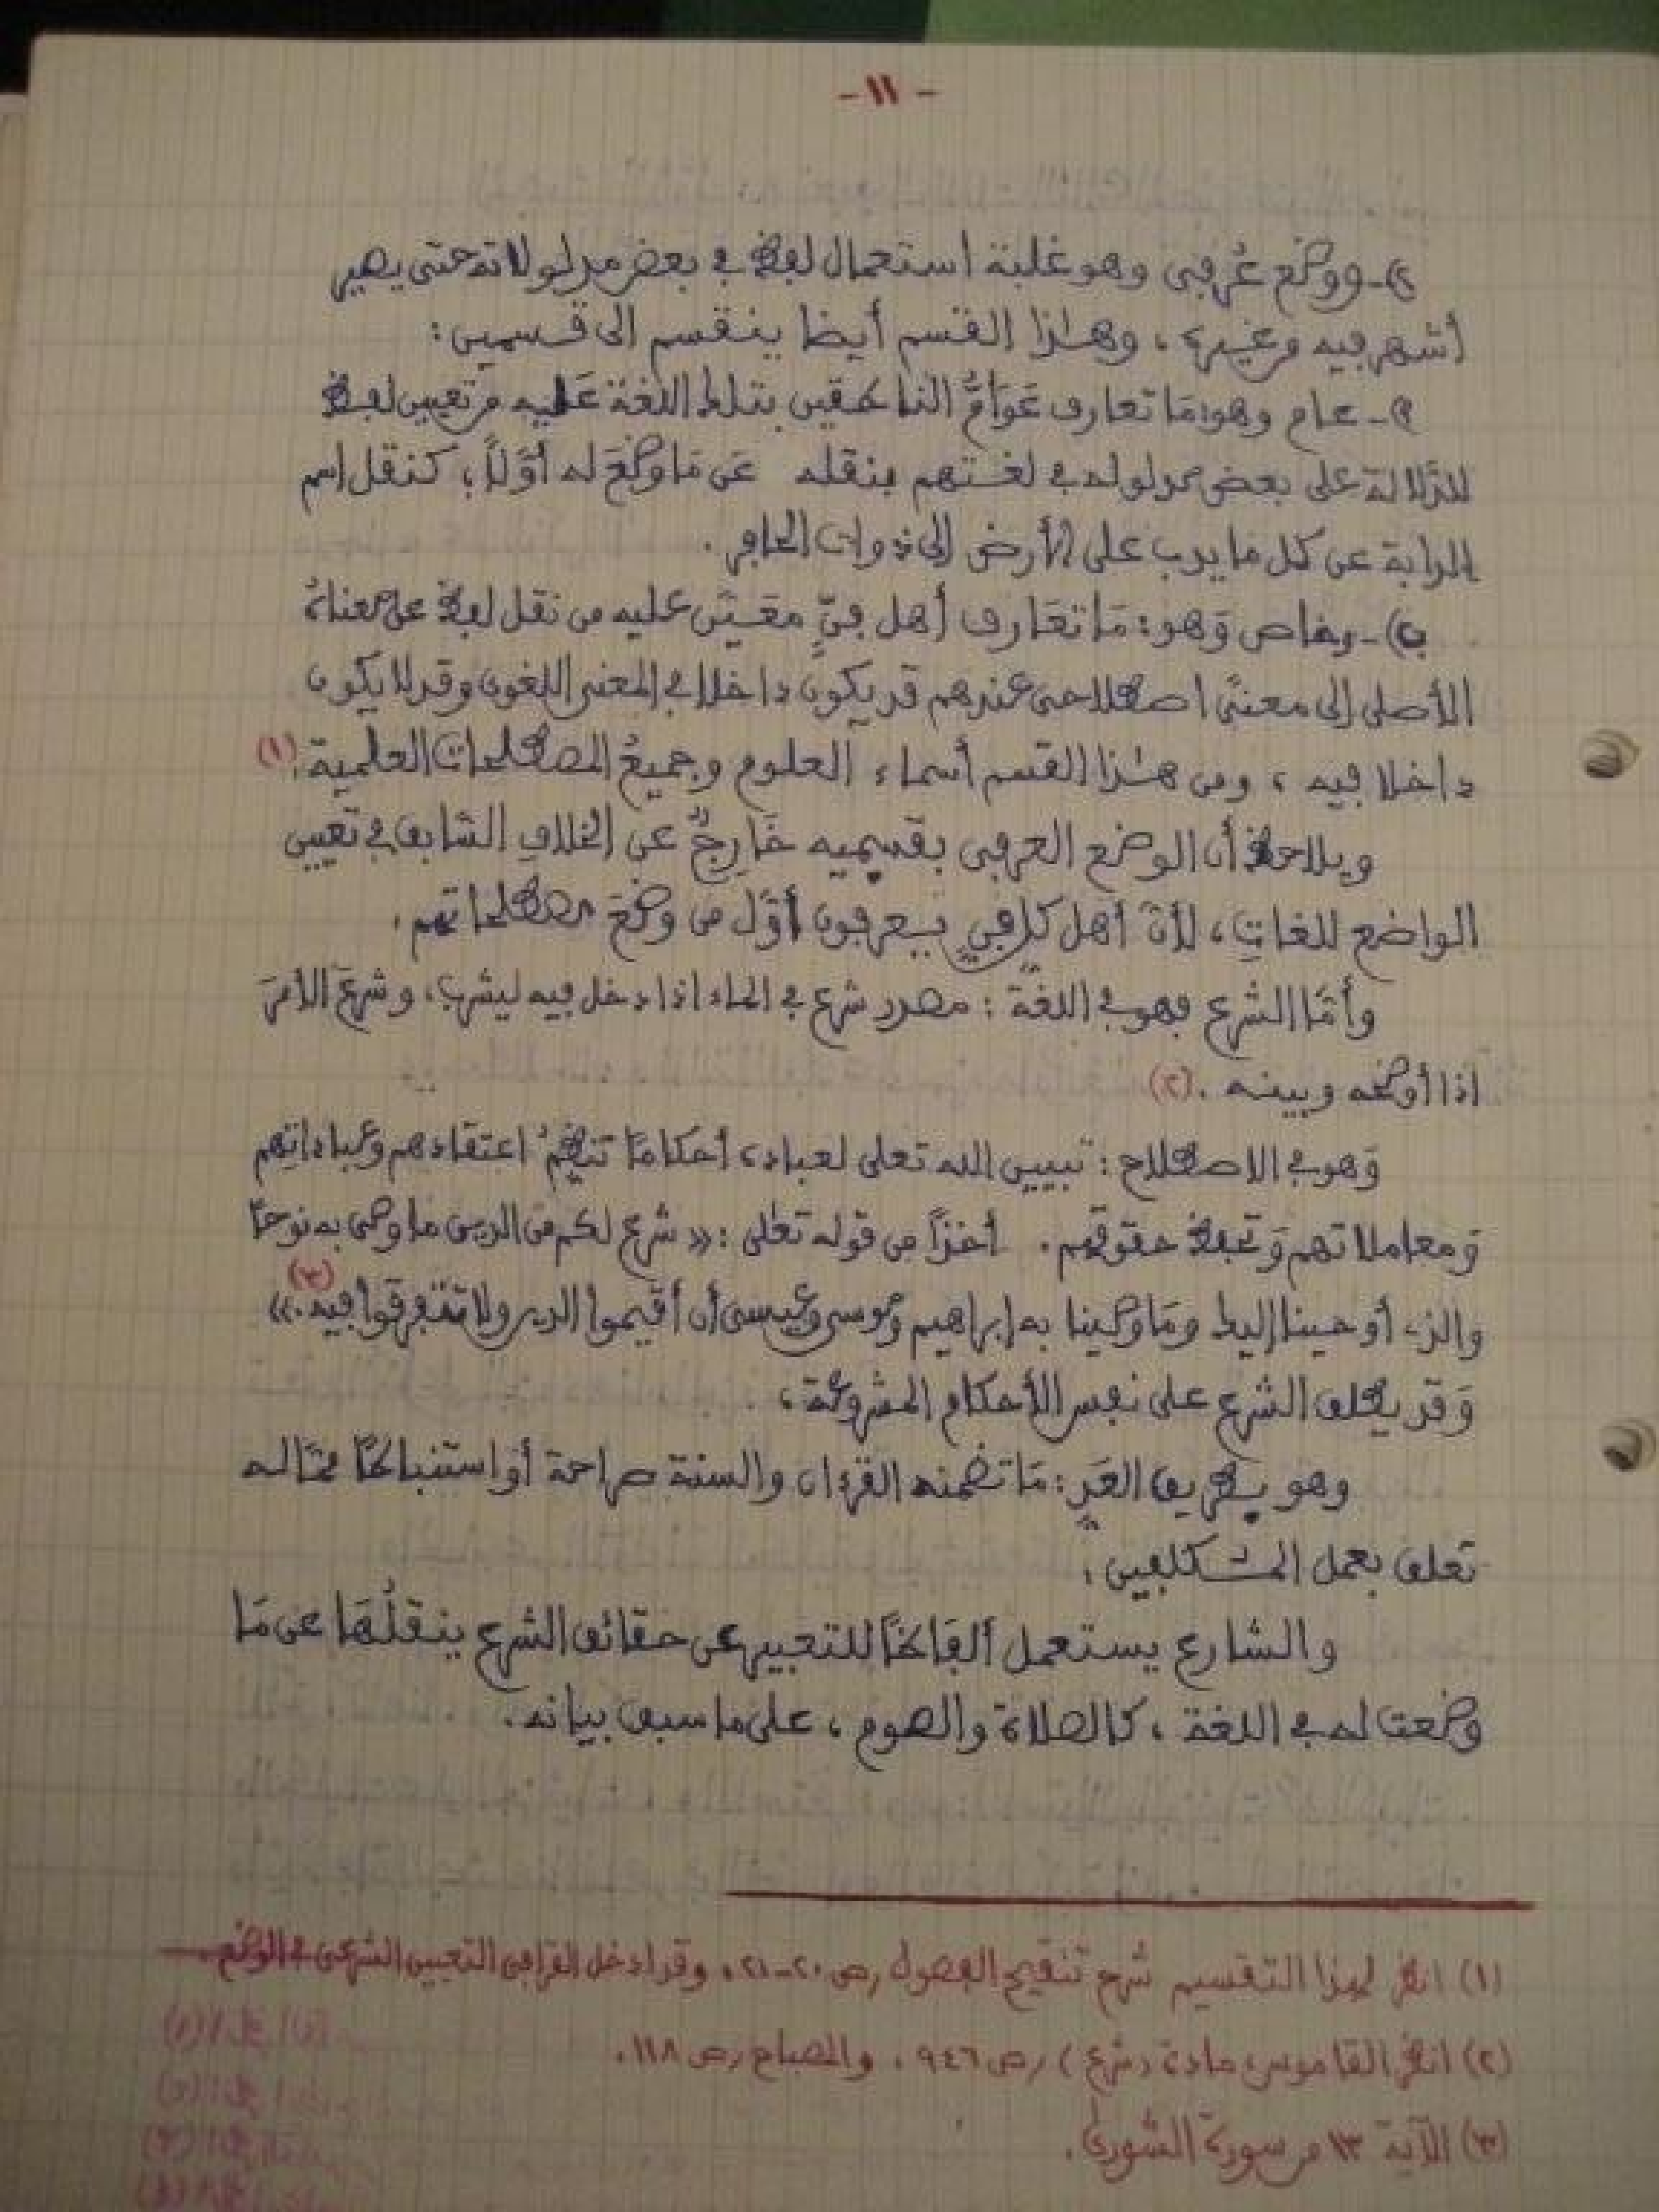 - ١١ -
٢)- ووضع عُرفي وهو غلبة استعمال لفظ في بعض مدلولاته حتى يصير
أشهر فيه من غيره، وهٰذا القسم أيضا ينقسم الى قسمين:
أ)- عام وهو: مَا تعارف عَوَامُّ الناطقين بتلك اللغة عَليه من تعيين لفظ
للدَّلالة على بعض مدلوله في لغتهم بنقله عَن مَا وضعَ له أوَّلاً؛ كنقل اسم
الدابة عن كل ما يدب على الأرض إلى ذوات الحافر.
ب)- وخاص وَهو: مَا تعَارف أهل فنٍّ معَيّن عليه من نقل لفظ عن معناهُ
الأصلى إلى معنىً اصطلاحى عندهم قد يكون داخلا في المعنى اللغوى وقد لا يكون
داخلا فيه، ومن هٰذا القسم أسماء العلوم وجميعُ المصطلحات العلمية: (١)
ويلاحظ أن الوضع العرفى بقسميه خَارِجٌ عن الخلافِ السّابق في تعيين
الواضع للغاتِ، لأنّ أهل كل فنٍّ يعرفون أوَّل من وضَعَ مصطلحاتهم.
وأمَّا الشرع فهو في اللغة: مصدر شرع في الماء اذا دخل فيه ليشرب، وشرعَ الأمرَ
اذا أوضحه وبينه. (٢)
وَهو في الاصطلاح: تبيين الله تعلى لعباده أحكامًا تنظِّمُ اعتقادهم وعباداتِهم
وَمعاملاتهم وَتحفظ حقوقهم. أخذًا من قوله تعٰلى: «شرع لكم من الدين ما وصى به نوحًا
والذى أوحينا إليك ومَا وصينا به إبراهيم وموسى وعيسى أن أقيموا الدين ولا تتفرقوا فيه.» (٣)
وَقد يطلق الشرع على نفس الأحكام المشروعة،
وهو بطريق العَدِّ: مَا تضمنه القرءان والسنة صراحة أو استنباطًا ممَّا له
تعلق بعمل المكلفين.
والشارع يستعمل ألفَاظًا للتعبير عن حقائق الشرع ينقلُهَا عن مَا
وضعت له في اللغة، كالصلاة والصوم، على ما سبق بيانه.
(١) انظر لهذا التقسيم شرح تنقيح الفصول رص ٢٠-٢١، وقد ادخل القرافي التعيين الشرعى في الوضع.
(٢) انظر القاموس، مادة (شرع) رص ٩٤٦، والمصباح رص ١١٨.
(٣) الآية ١٣ من سورة الشورى.